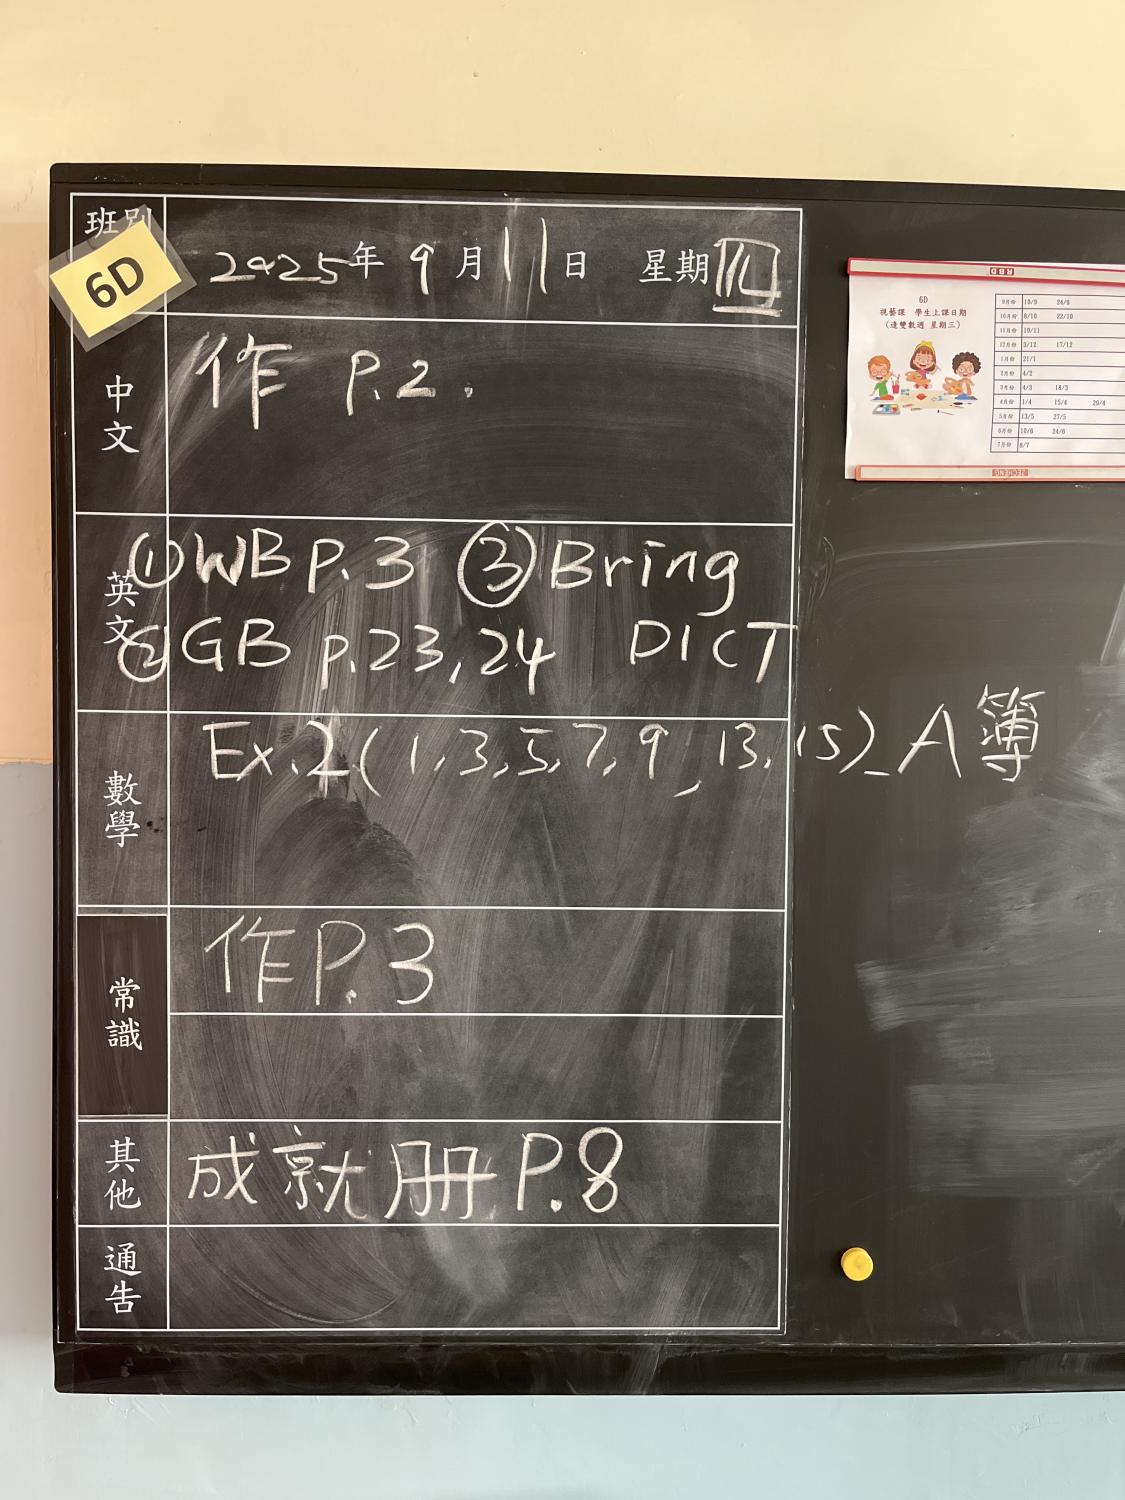 班別
6D
2025年 9月11日 星期四
中文
作 P.2.
英文
①WB P.3 ③Bring
②GB p.23,24 DICT
數學
Ex.2(1,3,5,7,9,13,15)_A簿
常識
作P.3
其他
成就册 P.8
通告
RBD
6D
視藝課 學生上課日期
(逢雙數週 星期三)
9月份 10/9 24/9
10月份 8/10 22/10
11月份 19/11
12月份 3/12 17/12
1月份 21/1
2月份 4/2
3月份 4/3 18/3
4月份 1/4 15/4 29/4
5月份 13/5 27/5
6月份 10/6 24/6
7月份 8/7